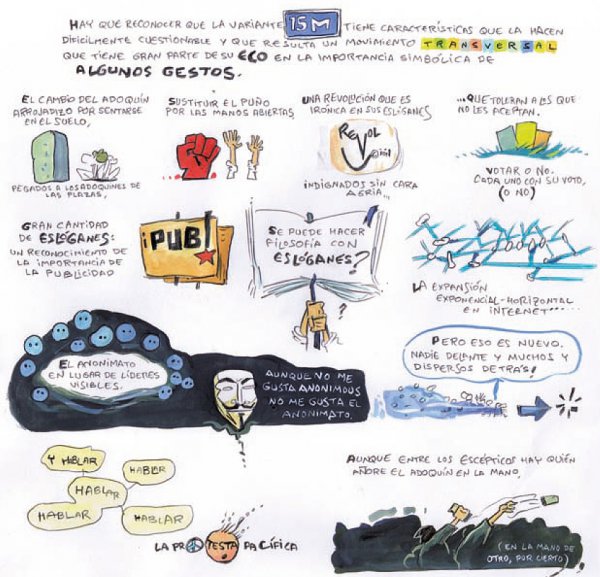 HAY QUE RECONOCER QUE LA VARIANTE 15M TIENE CARACTERÍSTICAS QUE LA HACEN
DIFICILMENTE CUESTIONABLE Y QUE RESULTA UN MOVIMIENTO TRANSVERSAL
QUE TIENE GRAN PARTE DE SU ECO EN LA IMPORTANCIA SIMBÓLICA DE
ALGUNOS GESTOS.
EL CAMBIO DEL ADOQUÍN
ARROJADIZO POR SENTARSE
EN EL SUELO,
PEGADOS A LOS ADOQUINES DE
LAS PLAZAS,
SUSTITUIR EL PUÑO
POR LAS MANOS ABIERTAS,
UNA REVOLUCIÓN QUE ES
IRÓNICA EN SUS ESLÓGANES
REVOL
INDIGNADOS SIN CARA
AGRIA...
...QUE TOLERAN A LOS QUE
NO LES ACEPTAN.
VOTAR O NO.
CADA UNO CON SU VOTO,
(O NO)
GRAN CANTIDAD
DE ESLÓGANES:
UN RECONOCIMIENTO DE
LA IMPORTANCIA DE
LA PUBLICIDAD
¡PUB!
SE PUEDE HACER
FILOSOFÍA CON
ESLÓGANES?
?
LA EXPANSIÓN
EXPONENCIAL-HORIZONTAL
EN INTERNET......
EL ANONIMATO
EN LUGAR DE LÍDERES
VISIBLES.
AUNQUE NO ME
GUSTA ANONIMOUS
NO ME GUSTA EL
ANONIMATO.
PERO ESO ES NUEVO.
NADIE DELANTE Y MUCHOS Y
DISPERSOS DETRÁS!
Y HABLAR
HABLAR
HABLAR
HABLAR
HABLAR
LA PROTESTA PACÍFICA
AUNQUE ENTRE LOS ESCÉPTICOS HAY QUIÉN
AÑORE EL ADOQUÍN EN LA MANO.
(EN LA MANO DE
OTRO, POR CIERTO)